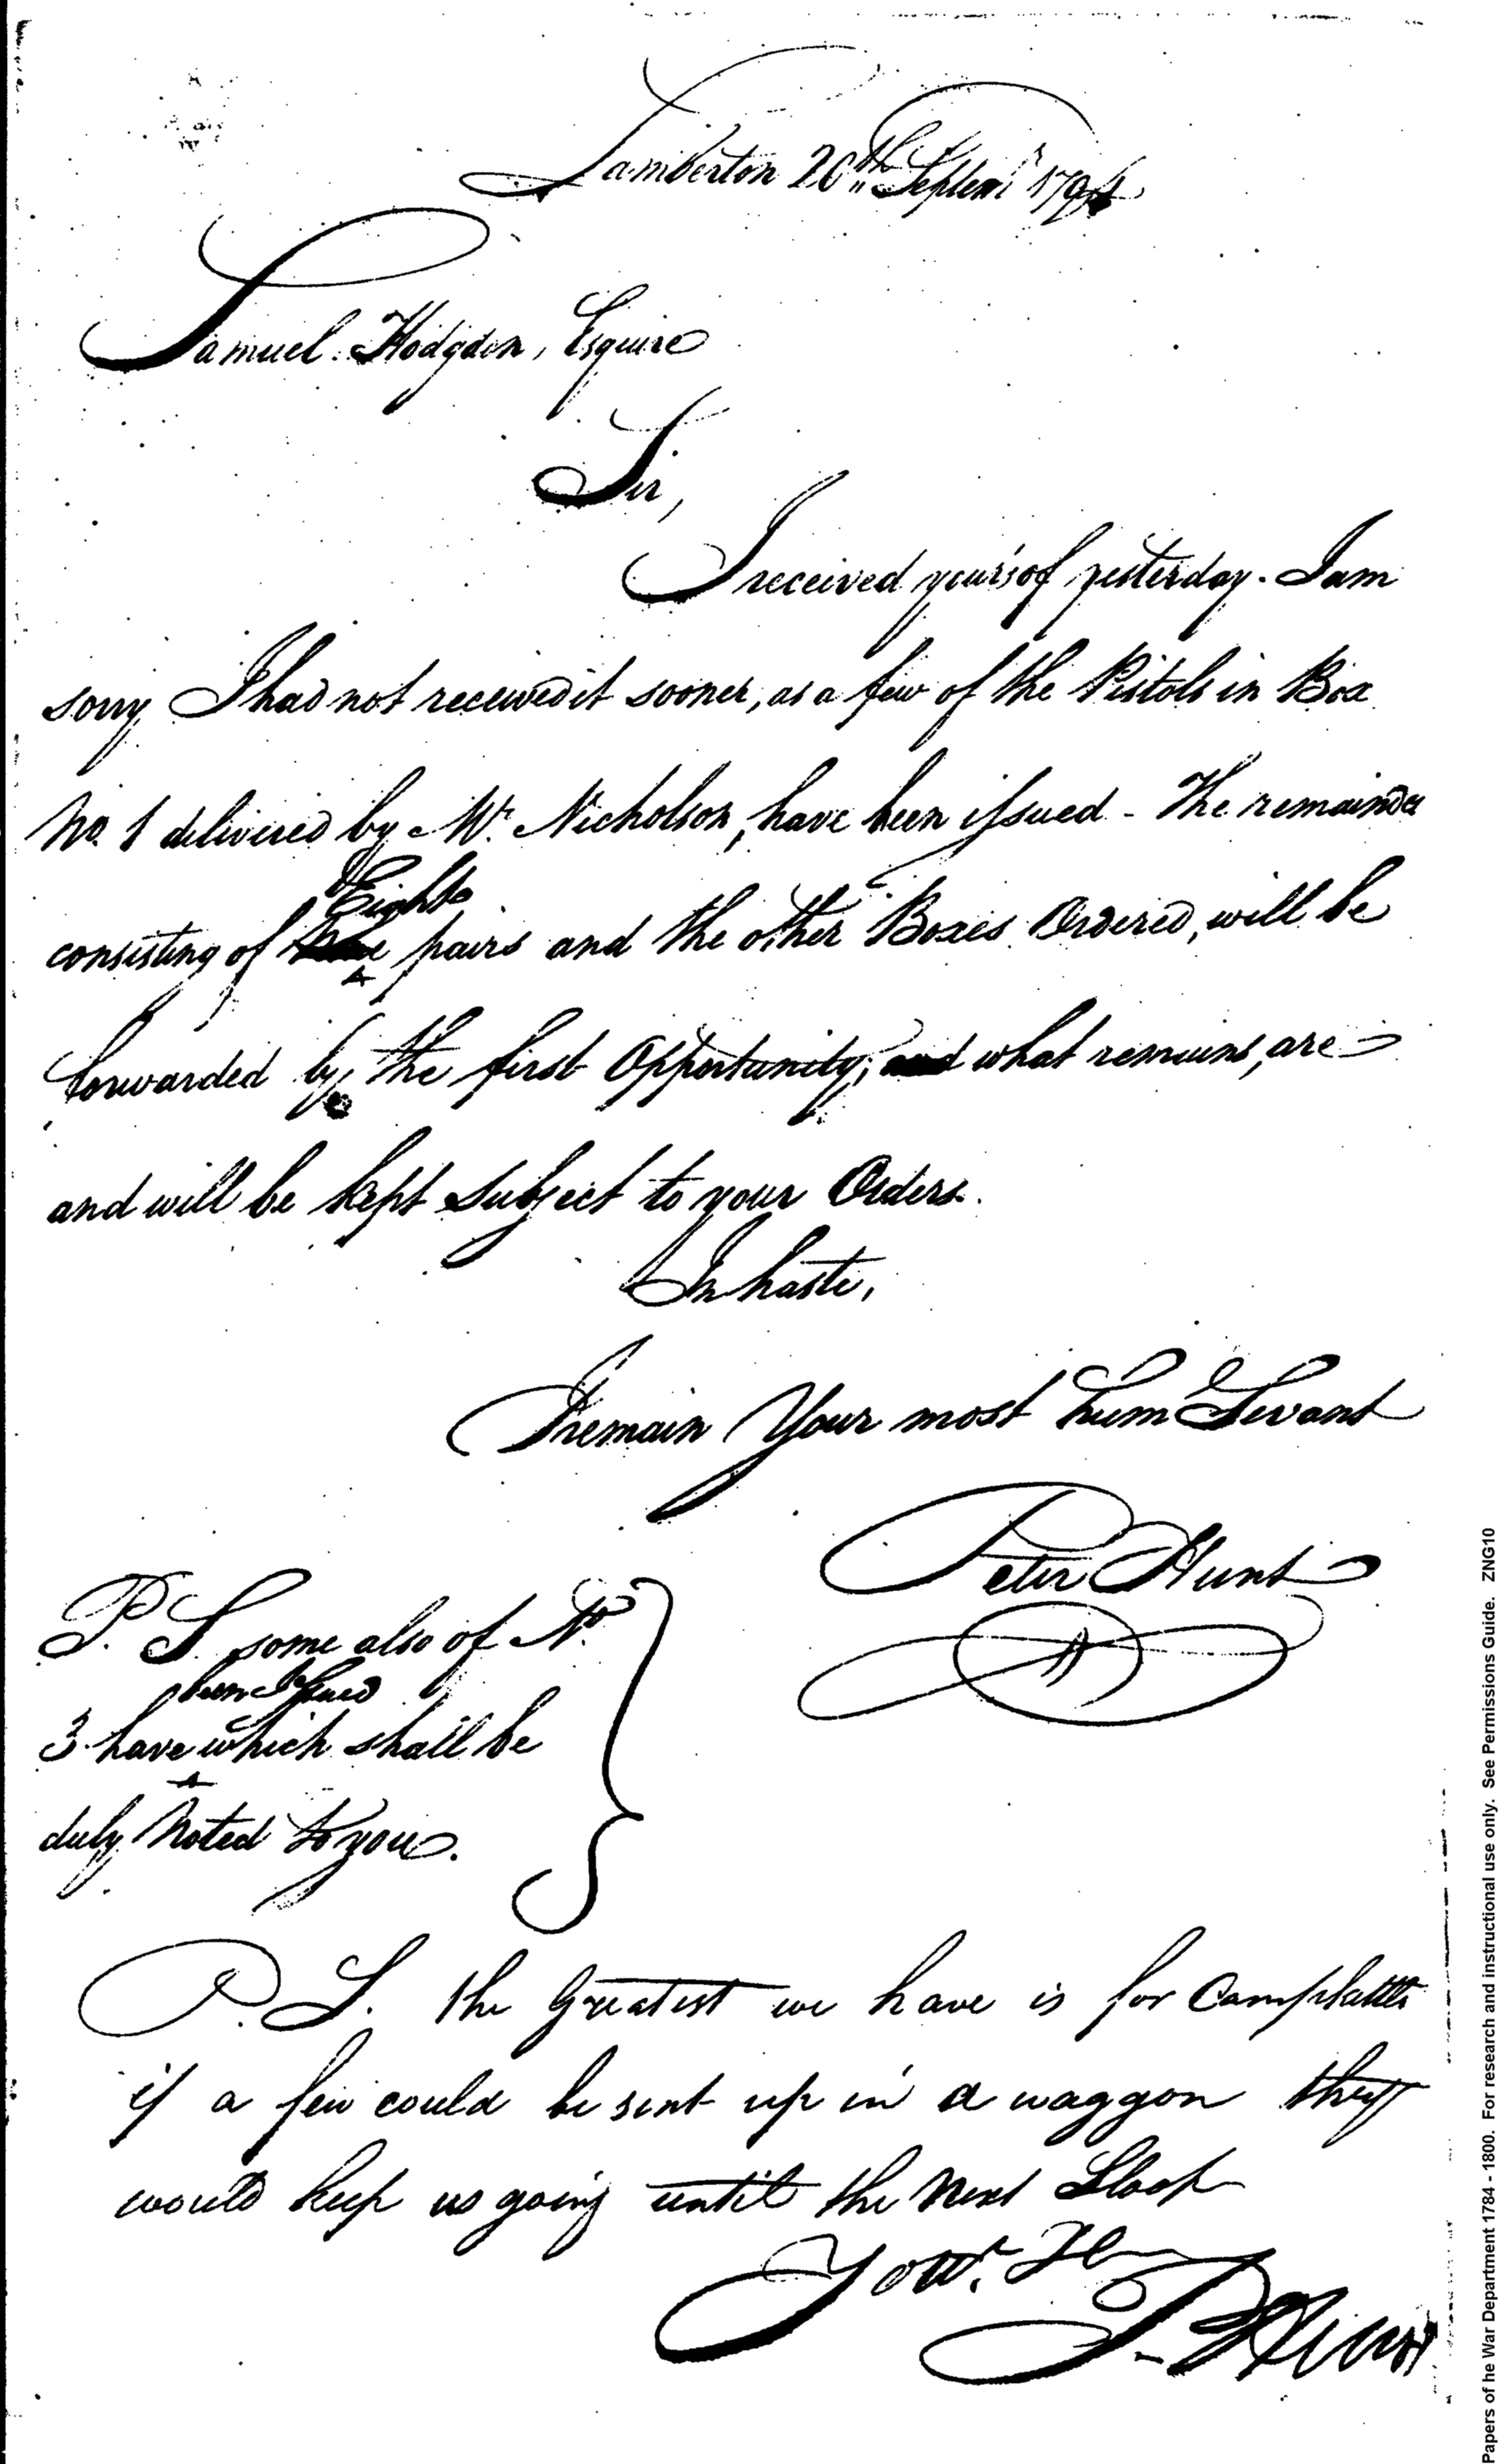 Lamberton 20th Septemr 1794
Samuel Hodgdon, Esquire
Sir,
I received your's of yesterday. I am
sorry I had not received it sooner, as a few of the Pistols in Box
No. 1 delivered by Mr. Nicholson, have been issued - The remainder
Eight
consisting of pairs and the other Boxes Ordered, will be
forwarded by the first Opportunity, and what remains, are
and will be kept subject to your Orders.
In haste,
I remain Your most hum Servant
Peter Hunt
P. S. some also of No.
been Issued
3 have which shall be
duly Noted to you.
P. S. the Greatest we have is for Campkettls
if a few could be sent up in a waggon they
would keep us going until the next Sloop
Yours
P. Hunt
Papers of he War Department 1784 - 1800. For research and instructional use only. See Permissions Guide. ZNG10